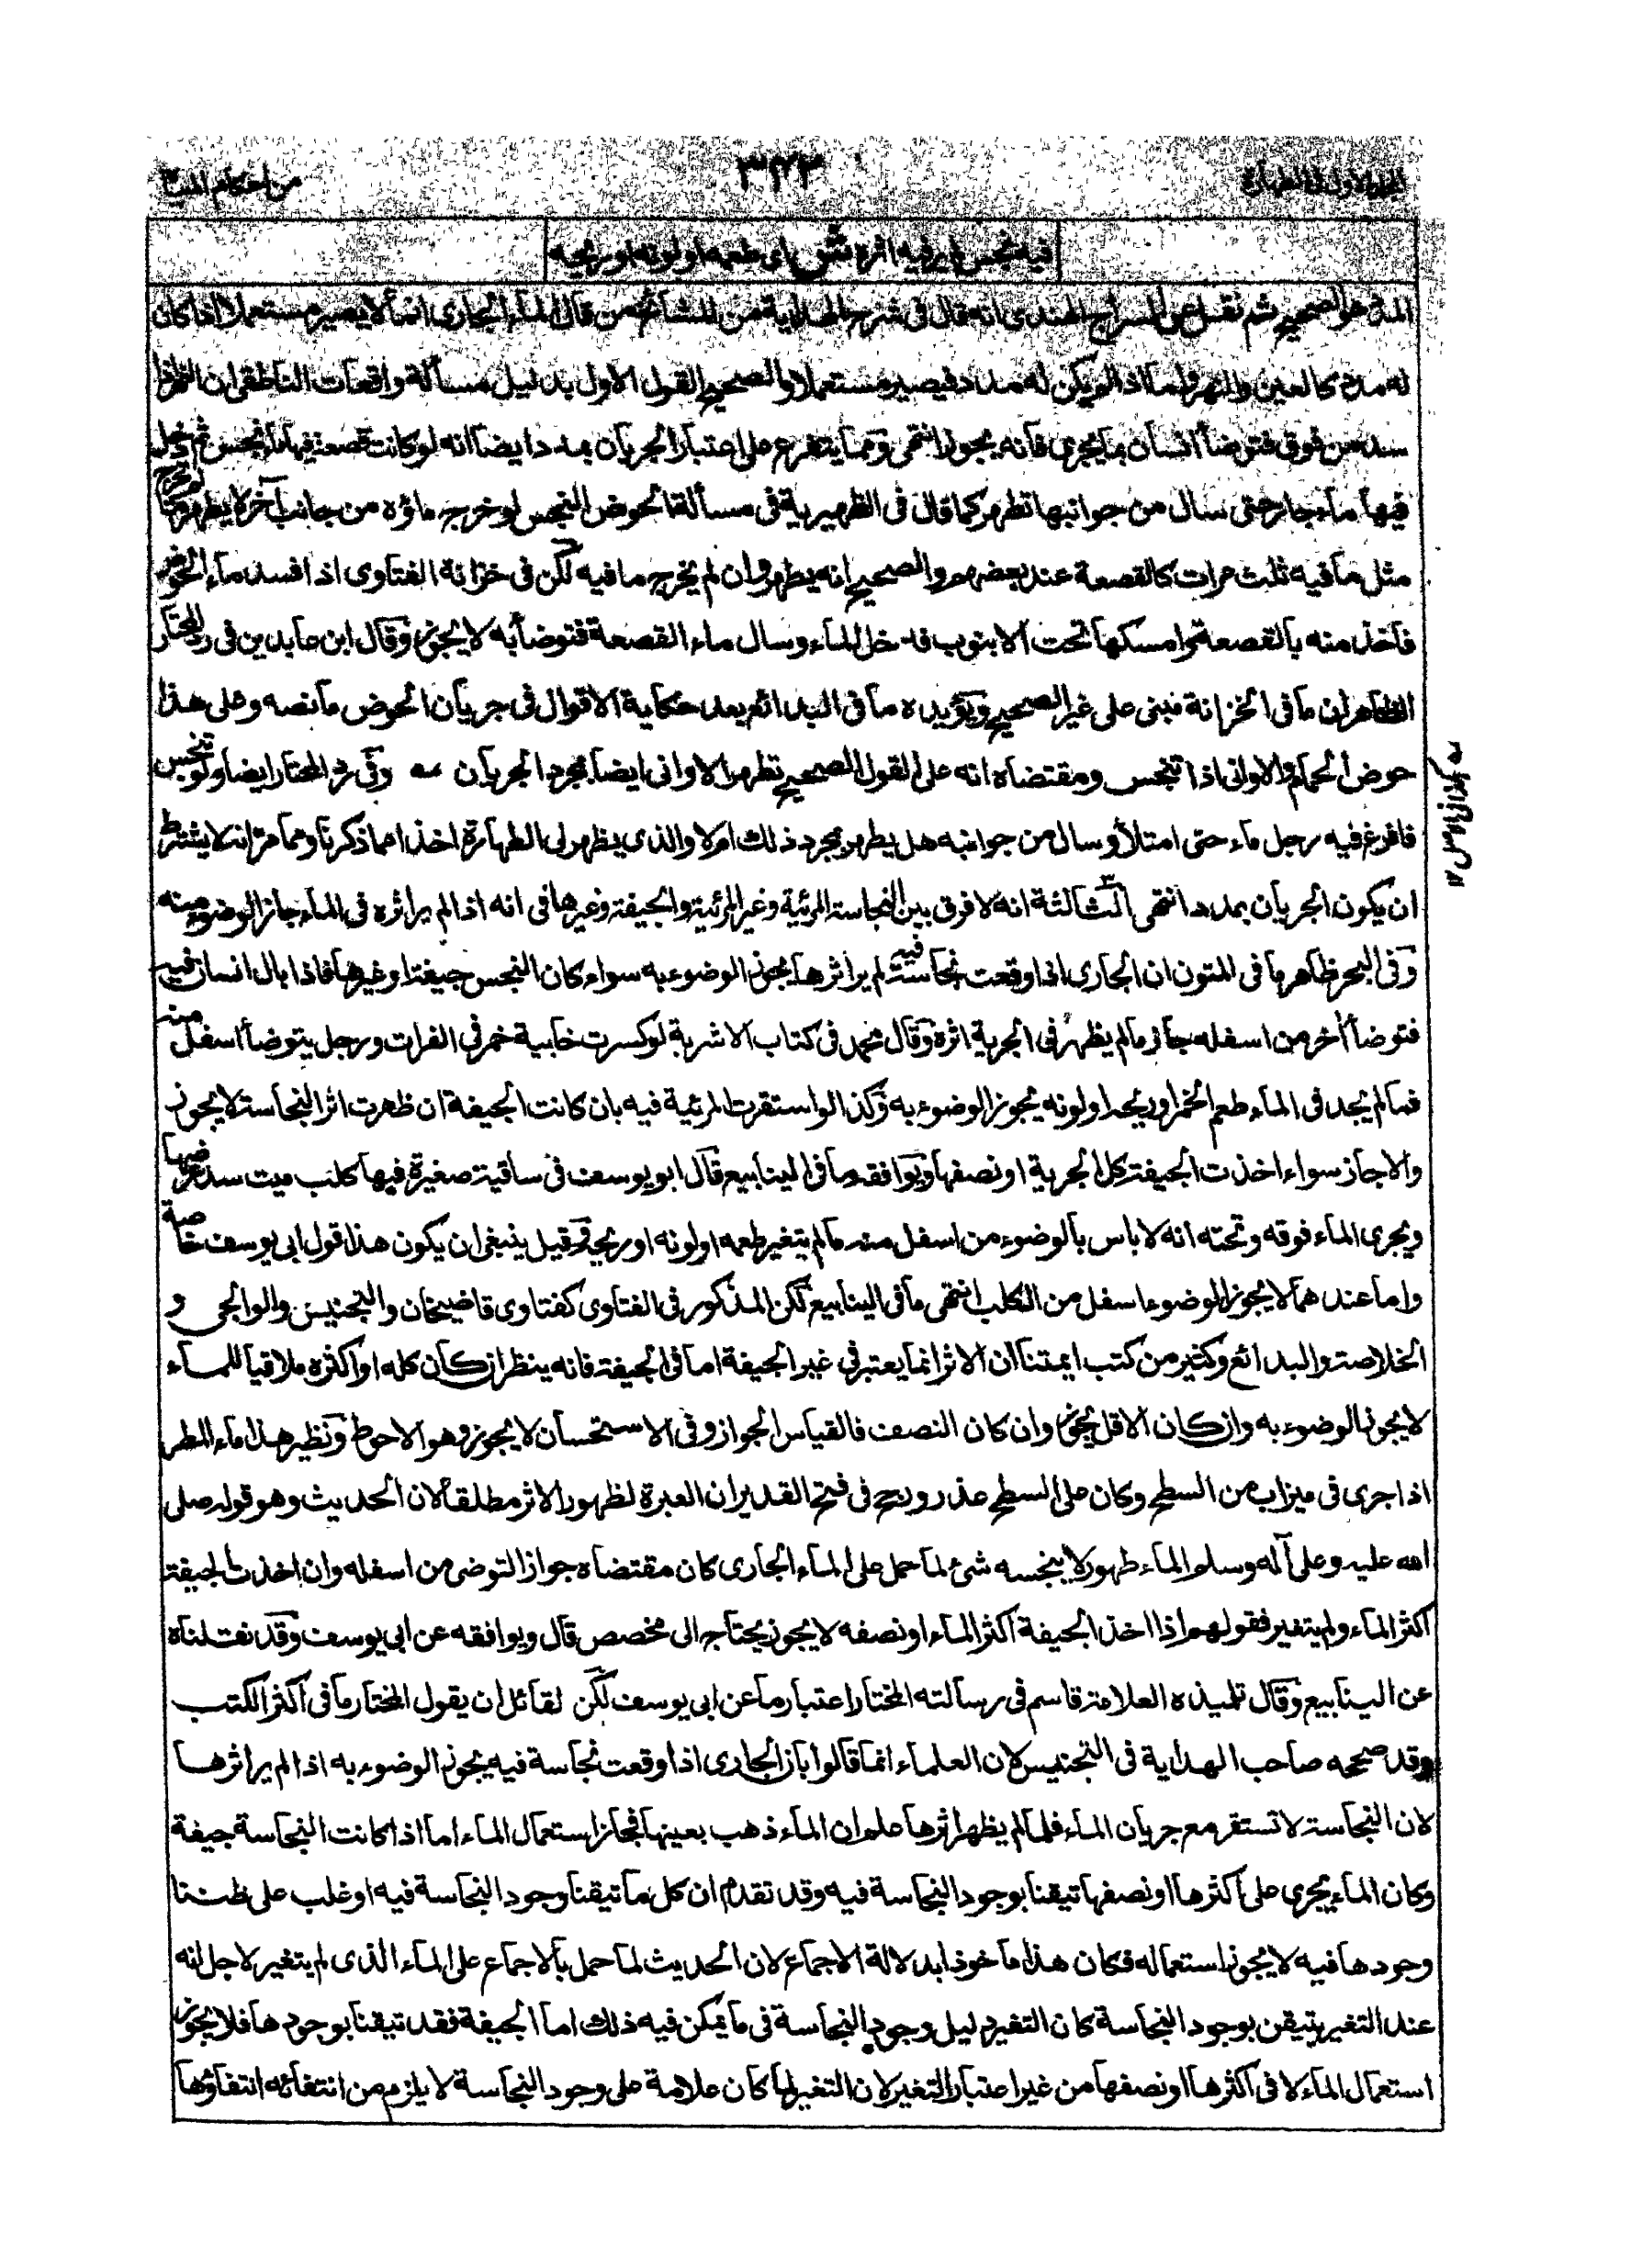 من احكام المياه
٣٧٣
المجلد الاول فى الطهارة
فيه نجس لم ير فيه اثره ش اى طعمه او لونه او ريحه
المدد هو الصحيح ثم نقل عن السراج الهندى انه قال فى شرح الهداية من المشائخ من قال الماء الجارى انما لا يصير مستعملا اذا كان
له مدد كالعين والنهر واما اذا لم يكن له مدد فيصير مستعملا والصحيح القول الاول بدليل مسألة واقعات الناطفى ان النهر اذا
سد من فوق فتوضأ انسان بما يجرى فانه يجوز انتهى ومما يتفرع على اعتبار الجريان بمدد ايضا انه لو كانت قصعة فيها ماء نجس ثم دخل
فيها ماء جار حتى سال من جوانبها تطهر كما قال فى الظهيرية فى مسألة الحوض النجس لو خرج ماؤه من جانب آخر لا يطهر ما لم يخرج
مثل ما فيه ثلث مرات كالقصعة عند بعضهم والصحيح انه يطهر وان لم يخرج ما فيه لكن فى خزانة الفتاوى اذا فسد ماء الحوض
فاخذ منه بالقصعة وامسكها تحت الانبوب فدخل الماء وسال ماء القصعة فتوضأ به لا يجوز وقال ابن عابدين فى رد المحتار
الظاهر ان ما فى الخزانة مبنى على غير الصحيح ويؤيده ما فى البدائع بعد حكاية الاقوال فى جريان الحوض ما نصه وعلى هذا
حوض الحمام والاوانى اذا تنجس ومقتضاه انه على القول الصحيح تطهر الاوانى ايضا بمجرد الجريان وفى رد المحتار ايضا ولو تنجس
فافرغ فيه رجل ماء حتى امتلأ وسال من جوانبه هل يطهر بمجرد ذلك ام لا والذى يظهر لى الطهارة اخذا مما ذكرنا ومما مر انه لا يشترط
ان يكون الجريان بمدد انتهى الثالثة انه لا فرق بين النجاسة المرئية وغير المرئية والجيفة وغيرها فى انه اذا لم ير اثره فى الماء جاز الوضوء منه
وفى البحر ظاهر ما فى المتون ان الجارى اذا وقعت فيه نجاسة لم ير اثرها يجوز الوضوء به سواء كان النجس جيفة او غيرها فاذا بال انسان فيه
فتوضأ آخر من اسفله جاز ما لم يظهر فى الجرية اثره وقال محمد فى كتاب الاشربة لو كسرت خابية خمر فى الفرات ورجل يتوضأ اسفل منه
فما لم يجد فى الماء طعم الخمر او ريحه او لونه يجوز الوضوء به وكذا لو استقرت المرئية فيه بان كانت الجيفة ان ظهرت اثر النجاسة لا يجوز
والا جاز سواء اخذت الجيفة كل الجرية او نصفها ويوافقه ما فى الينابيع قال ابو يوسف فى ساقية صغيرة فيها كلب ميت سد عرضها
ويجرى الماء فوقه وتحته انه لا باس بالوضوء من اسفل منه ما لم يتغير طعمه او لونه او ريحه وقيل ينبغى ان يكون هذا قول ابى يوسف خاصة
واما عندهما لا يجوز الوضوء اسفل من الكلب انتهى ما فى الينابيع لكن المذكور فى الفتاوى كفتاوى قاضيخان والتجنيس والوالجى و
الخلاصة والبدائع وكثير من كتب ائمتنا ان الاثر انما يعتبر فى غير الجيفة اما فى الجيفة فانه ينظر ان كان كله او اكثره ملاقيا للماء
لا يجوز الوضوء به وان كان الاقل يجوز وان كان النصف فالقياس الجواز وفى الاستحسان لا يجوز وهو الاحوط ونظير هذا ماء المطر
اذا جرى فى ميزاب من السطح وكان على السطح عذرة ورجح فى فتح القدير ان العبرة لظهور الاثر مطلقا لان الحديث وهو قوله صلى
الله عليه وعلى آله وسلم الماء طهور لا ينجسه شئ لما حمل على الماء الجارى كان مقتضاه جواز التوضى من اسفله وان اخذت الجيفة
اكثر الماء ولم يتغير فقولهم اذا اخذ الجيفة اكثر الماء او نصفه لا يجوز يحتاج الى مخصص قال ويوافقه عن ابى يوسف وقد نقلناه
عن الينابيع وقال تلميذه العلامة قاسم فى رسالته المختار اعتبار ما عن ابى يوسف لكن لقائل ان يقول المختار ما فى اكثر الكتب
وقد صححه صاحب الهداية فى التجنيس لان العلماء انما قالوا بان الجارى اذا وقعت نجاسة فيه يجوز الوضوء به اذا لم ير اثرها
لان النجاسة لا تستقر مع جريان الماء فلما لم يظهر اثرها علم ان الماء ذهب بعينها فجاز استعمال الماء اما اذا كانت النجاسة جيفة
وكان الماء يجرى على اكثرها او نصفها تيقنا بوجود النجاسة فيه وقد تقدم ان كل ما تيقنا وجود النجاسة فيه او غلب على ظننا
وجودها فيه لا يجوز استعماله فكان هذا ماخوذا بدلالة الاجماع لان الحديث لما حمل بالاجماع على الماء الذى لم يتغير لاجل انه
عند التغير يتيقن بوجود النجاسة كان التغير دليل وجود النجاسة فى ما يمكن فيه ذلك اما الجيفة فقد تيقنا بوجودها فلا يجوز
استعمال الماء لا فى اكثرها او نصفها من غير اعتبار التغير لان التغير لما كان علامة على وجود النجاسة لا يلزم من انتفائه انتفاؤها